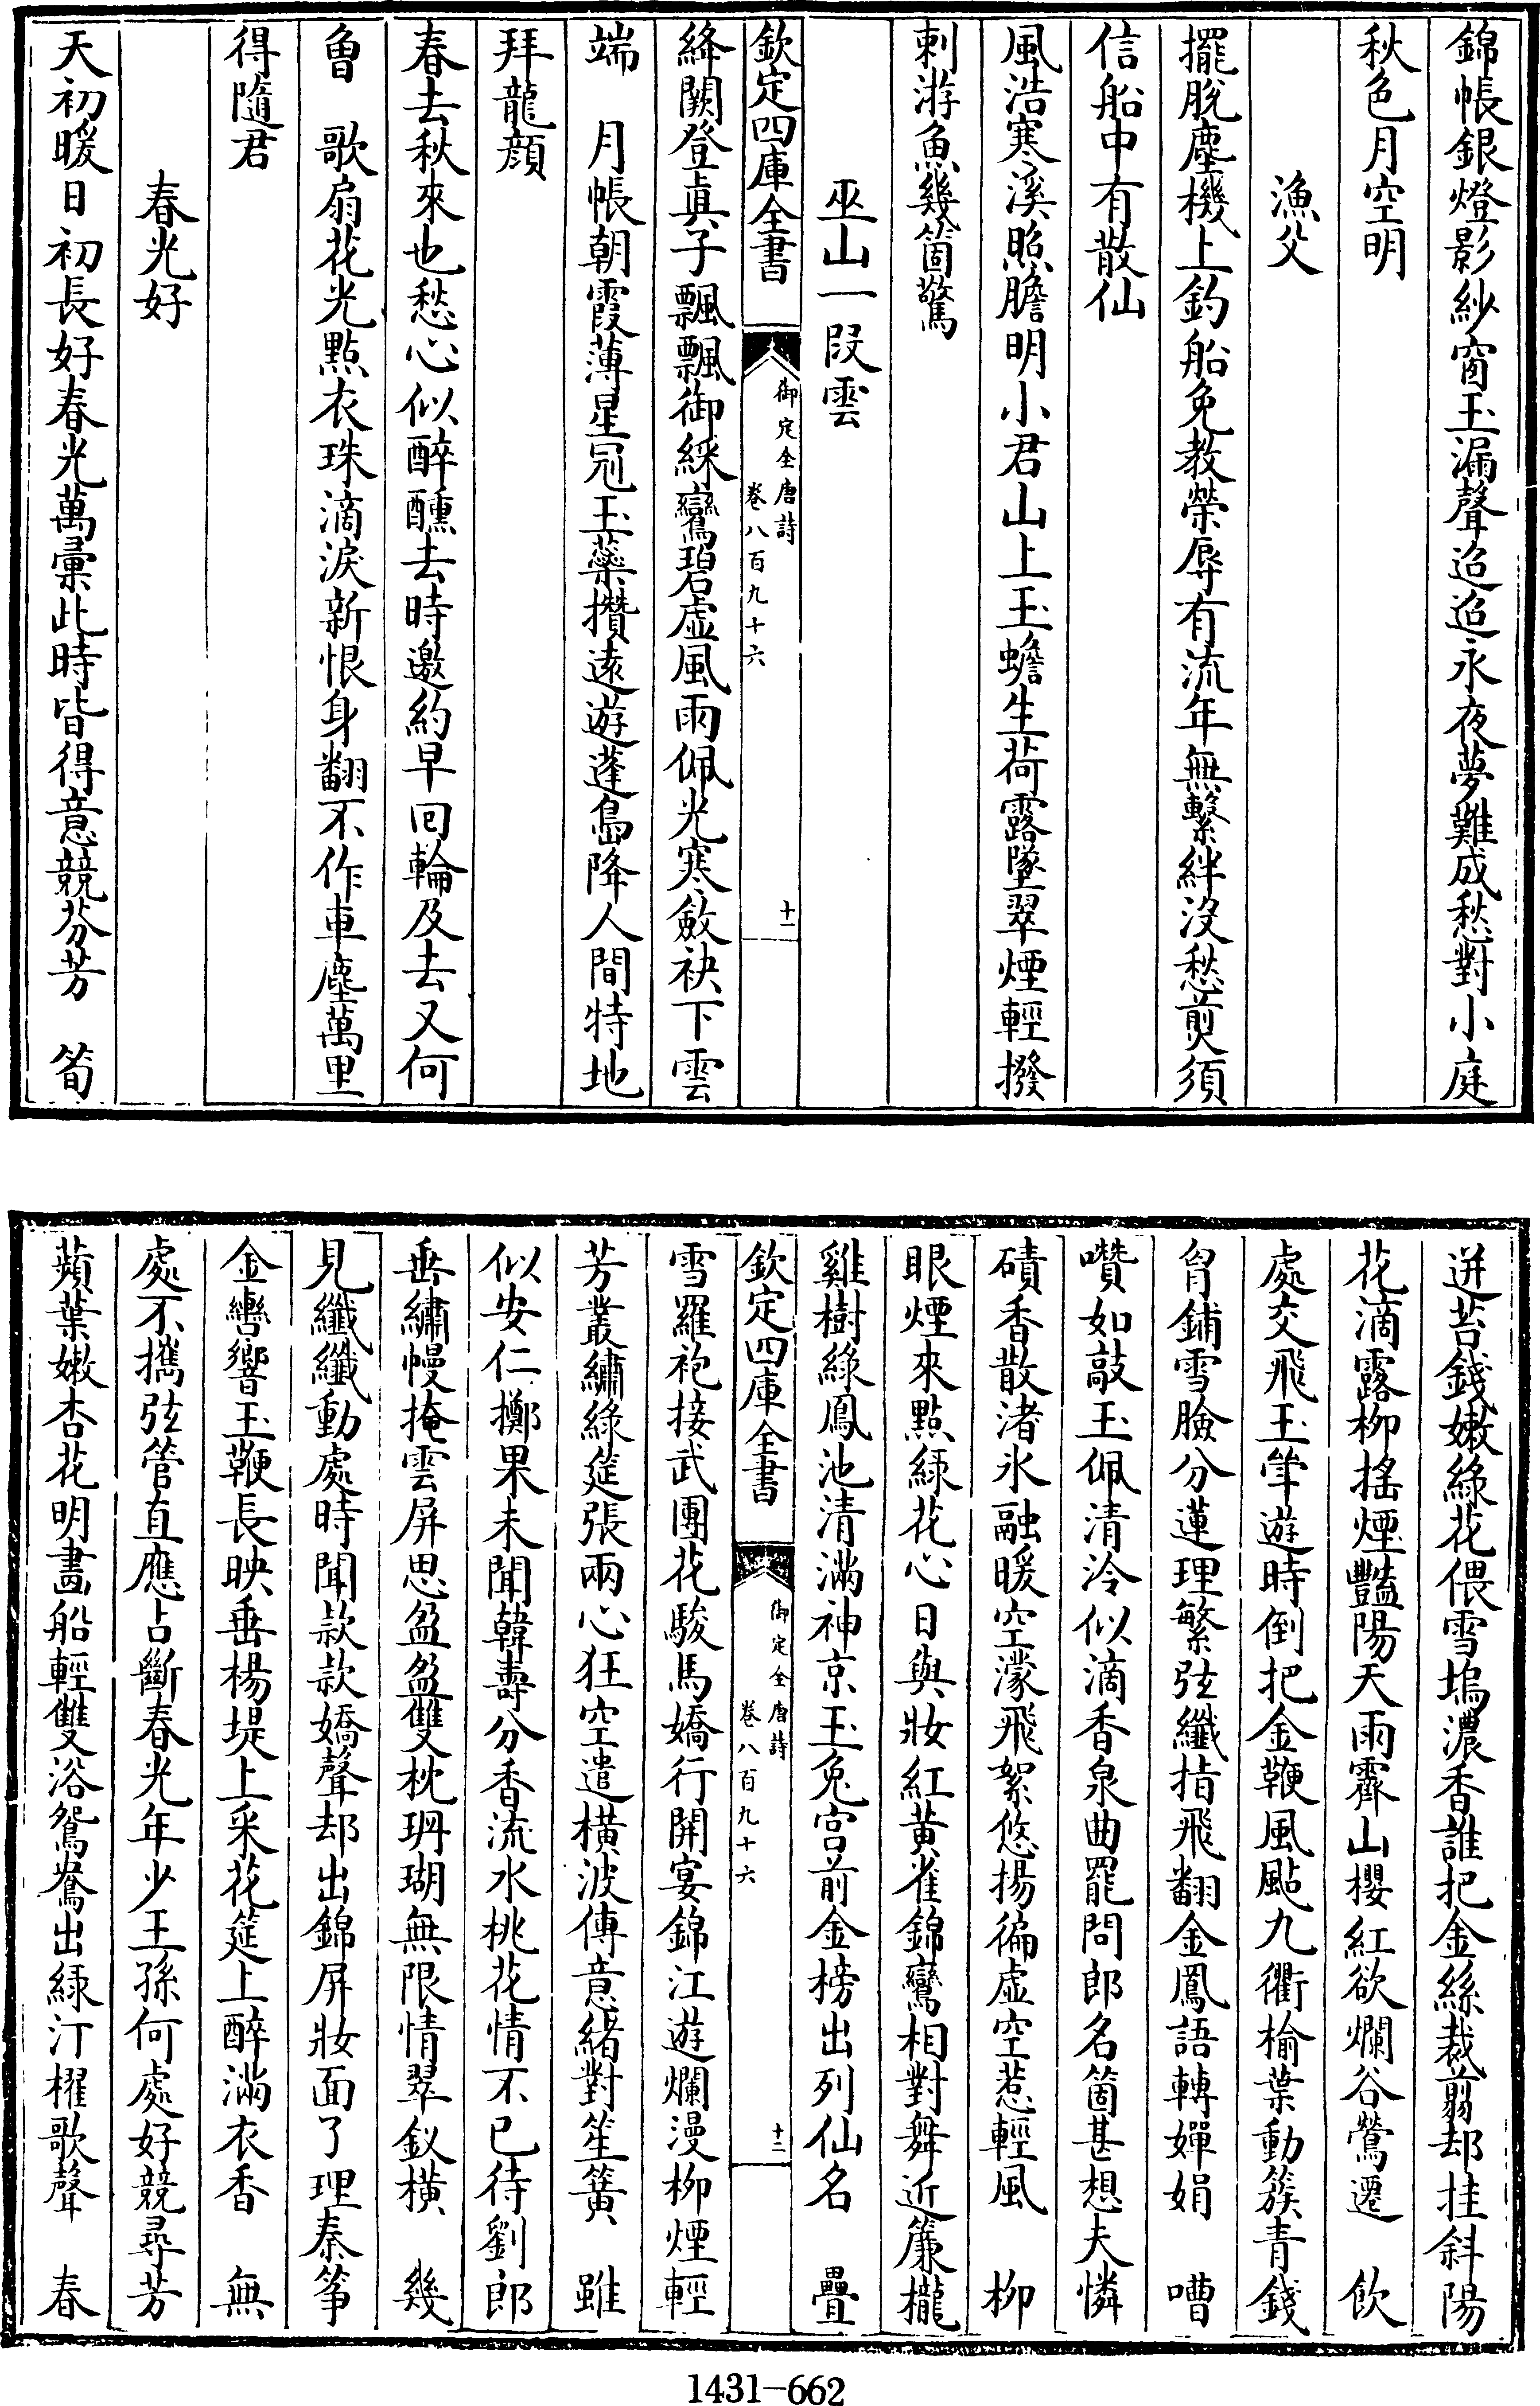 錦帳銀燈影紗窗玉漏聲迢迢永夜夢難成愁對小庭
秋色月空明
漁父
擺脫塵機上釣船免教榮辱有流年無繫絆沒愁煎須
信船中有散仙
風浩寒溪照膽明小君山上玉蟾生荷露墜翠煙輕撥
剌游魚幾箇驚
巫山一段雲
欽定四庫全書
御定全唐詩
卷八百九十六
十一
絳闕登真子飄飄御綵鸞碧虛風雨佩光寒斂袂下雲
端　月帳朝霞薄星冠玉蘂攢遠遊蓬島降人間特地
拜龍顏
春去秋來也愁心似醉醺去時邀約早回輪及去又何
曾　歌扇花光點衣珠滴淚新恨身翻不作車塵萬里
得隨君
春光好
天初暖日初長好春光萬彙此時皆得意競芬芳　筍
迸苔錢嫩綠花偎雪塢濃香誰把金絲裁剪却挂斜陽
花滴露柳搖煙豔陽天雨霽山櫻紅欲爛谷鶯遷　飲
處交飛玉斝遊時倒把金鞭風颭九衢榆葉動簇青錢
胷鋪雪臉分蓮理繁弦纖指飛翻金鳳語轉嬋娟　嘈
囋如敲玉佩清泠似滴香泉曲罷問郎名箇甚想夫憐
磧香散渚氷融暖空濛飛絮悠揚徧虛空惹輕風　柳
眼煙來點綠花心日與妝紅黃雀錦鸞相對舞近簾櫳
雞樹綠鳳池清滿神京玉兔宮前金榜出列仙名　疊
欽定四庫全書
御定全唐詩
卷八百九十六
十二
雪羅袍接武團花駿馬嬌行開宴錦江遊爛漫柳煙輕
芳叢繡綠筵張兩心狂空遣橫波傳意緒對笙簧　雖
似安仁擲果未聞韓壽分香流水桃花情不已待劉郎
垂繡幔掩雲屏思盈盈雙枕珊瑚無限情翠釵橫　幾
見纖纖動處時聞款款嬌聲却出錦屏妝面了理秦箏
金轡響玉鞭長映垂楊堤上采花筵上醉滿衣香　無
處不攜弦管直應占斷春光年少王孫何處好競尋芳
蘋葉嫩杏花明畫船輕雙浴鴛鴦出綠汀櫂歌聲　春
1431-662